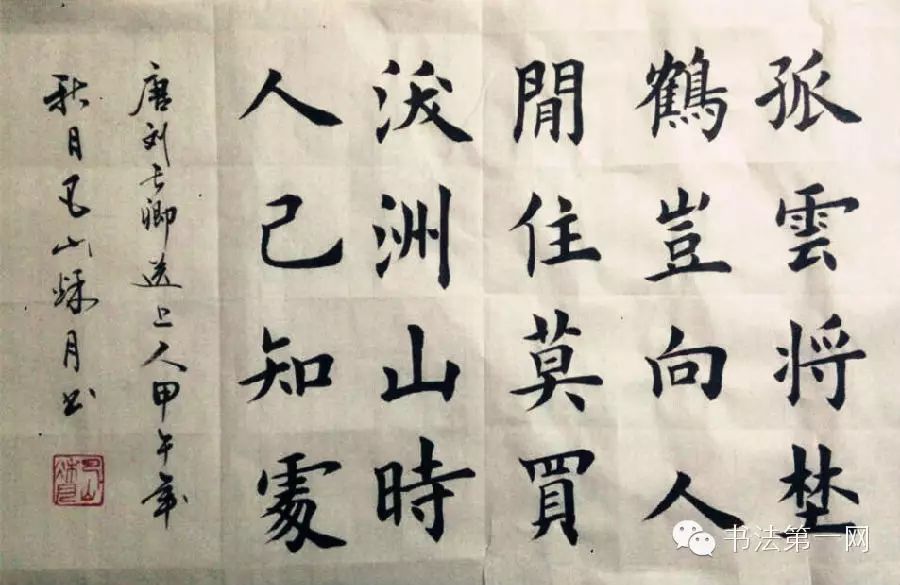 孤雲将埜
鶴豈向人
閒住莫買
沃洲山時
人已知處
唐刘长卿送上人甲午年
秋月山月书
书法第一网